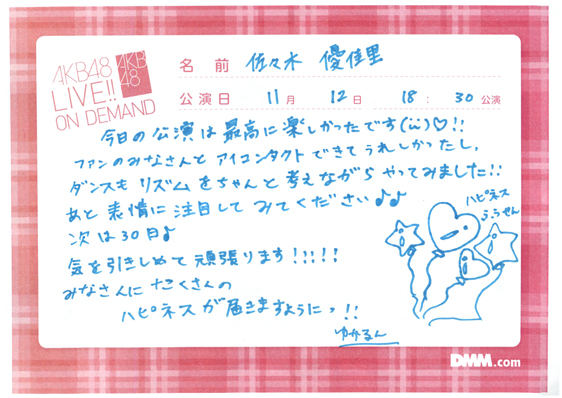 AKB48
LIVE!!
ON DEMAND
AKB
48
名前 佐々木 優佳里
公演日 11月 12日 18:30公演
今日の公演は最高に楽しかったです(ü)♡!!
ファンのみなさんとアイコンタクトできてうれしかったし、
ダンスもリズムをちゃんと考えながらやってみました!!
あと表情に注目してみてください♪♪
次は30日♪
気を引きしめて頑張ります!!!!!
みなさんにたくさんの
ハピネスが届きますようにっ!!
ハピネス
ふうせん
ゆかるん
DMM.com